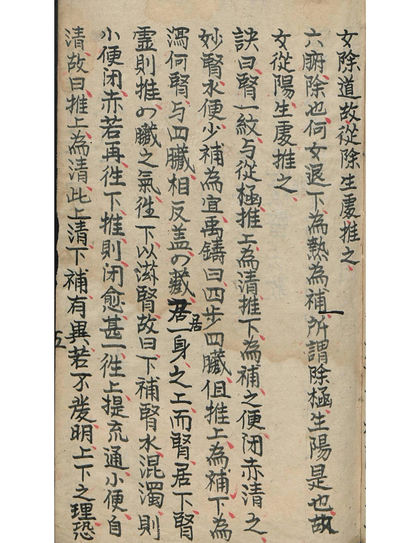 女除道故從除生處推之
六腑除也何女退下為熱為補所謂除極生陽是也故
女從陽生處推之
訣曰腎一紋与從極推上為清推下為補之便閉赤清之
妙腎水便少補為宜禹鑄曰四步四臟但推上為補下為
瀉何腎与四臟相反盖の藏居一身之上而腎居下腎
靈則推の臟之氣徃下以滋腎故曰下補腎水混濁則
小便闭赤若再徃下推則闭愈甚一徃上提流通小便自
清故曰推上為清此上清下補有異若不发明上下之理恐